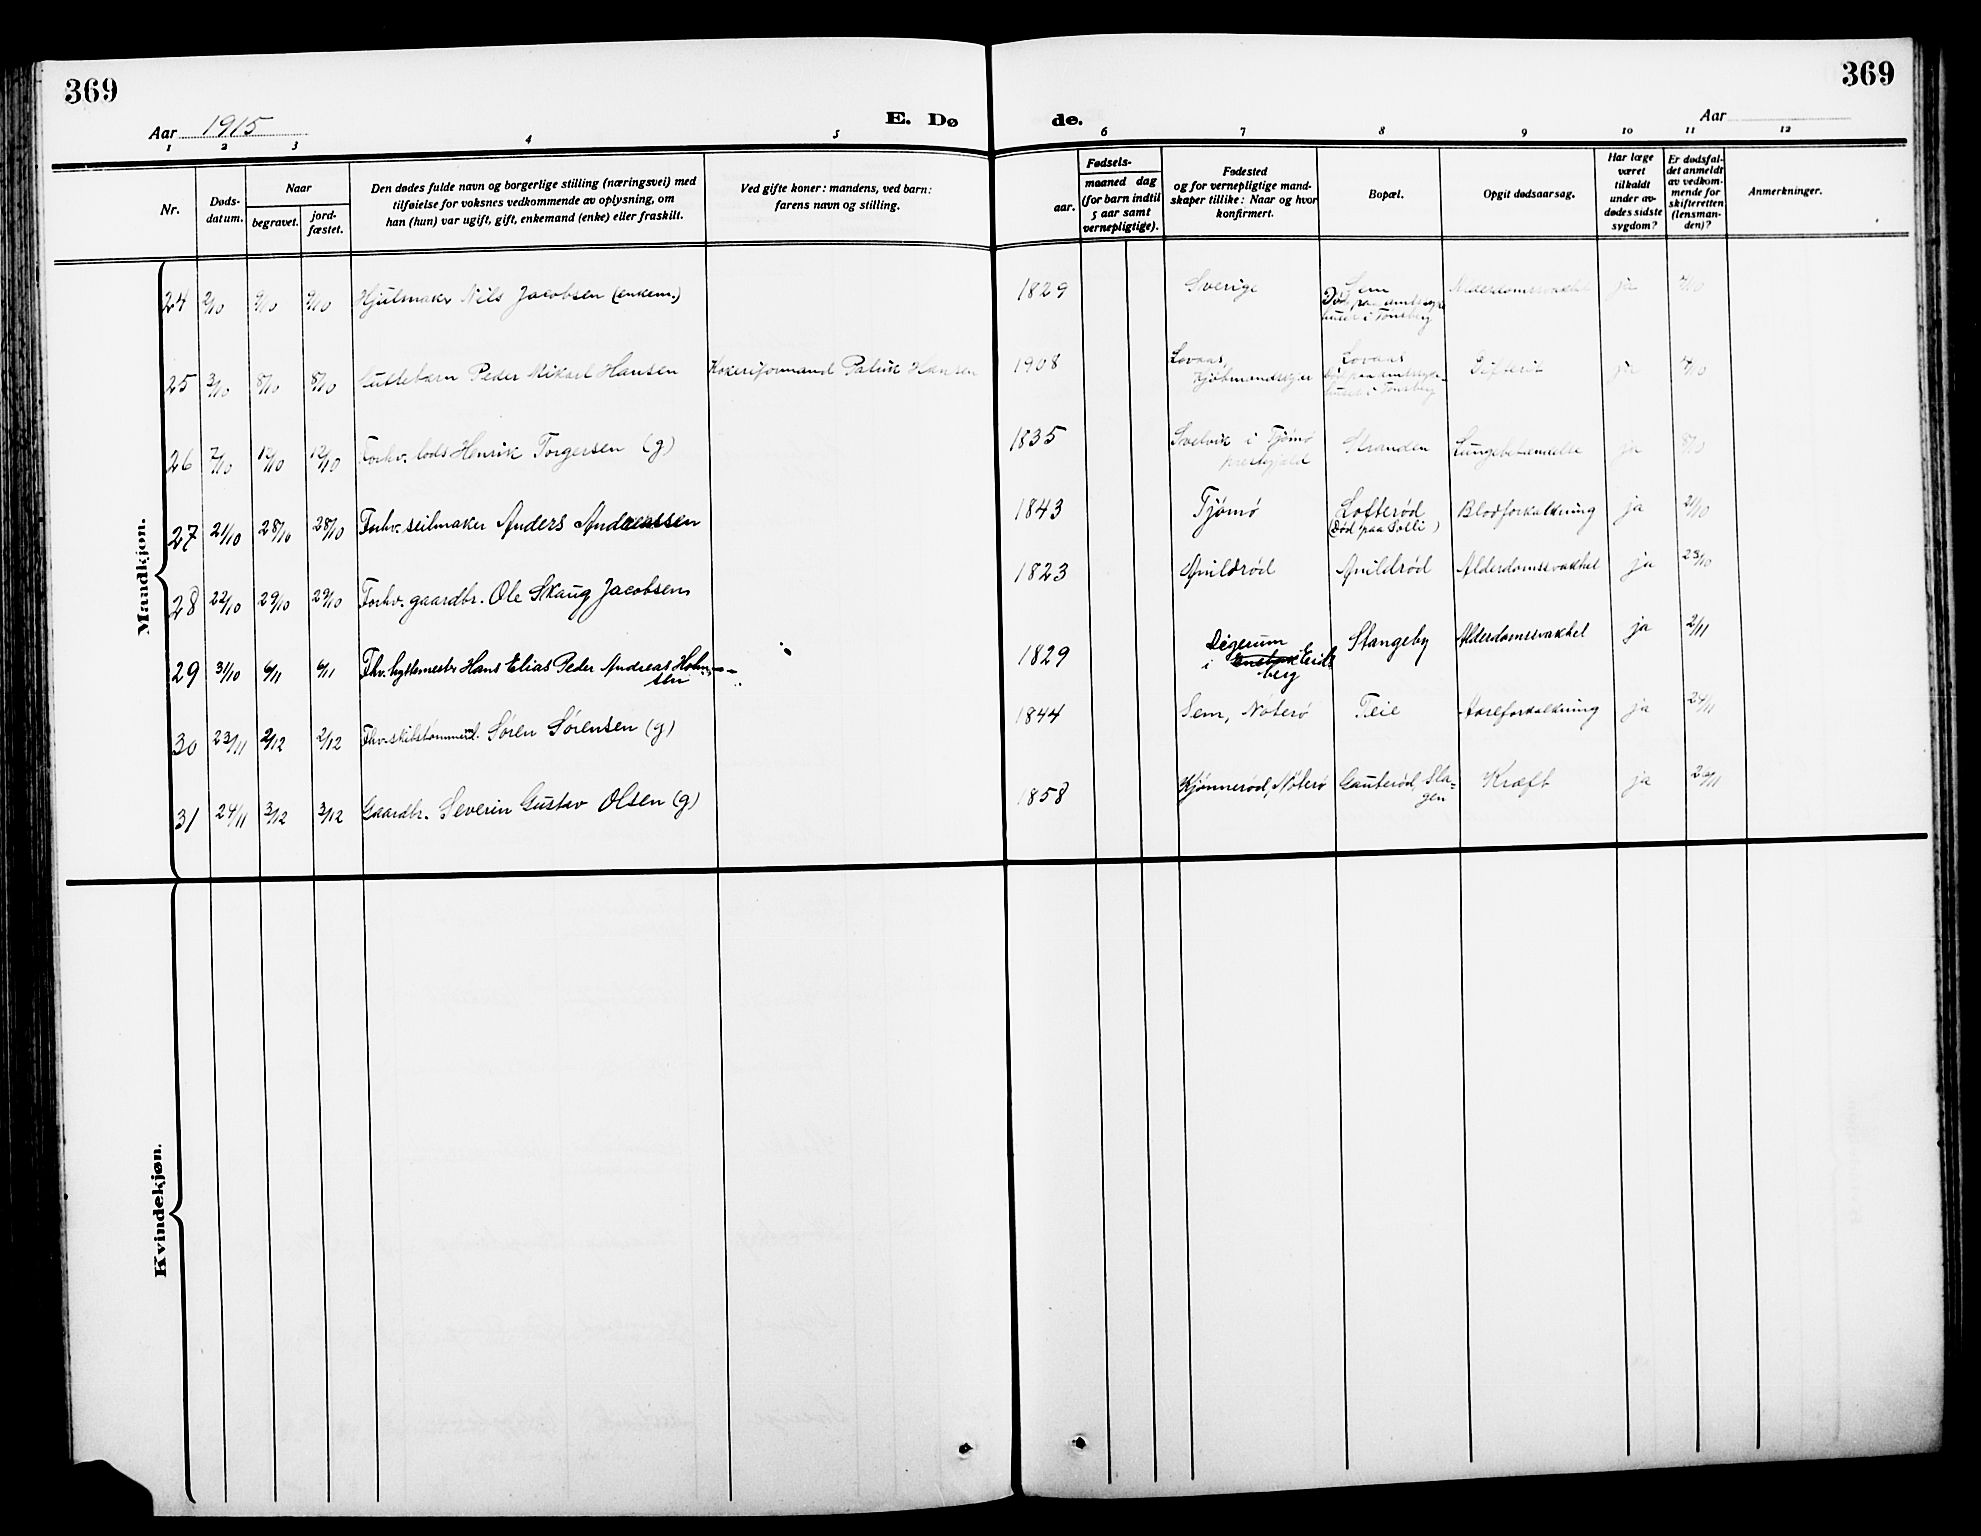 369
369
Aar 1915
E. Dø
de.
Aar
1 2 3 4 5
6 7 8 9 10 11 12
Nr.
Døds-
datum.
Naar
begravet.
jord-
fæstet.
Den dødes fulde navn og borgerlige stilling (næringsvei) med
tilføielse for voksnes vedkommende av oplysning, om
han (hun) var ugift, gift, enkemand (enke) eller fraskilt.
Ved gifte koner: mandens, ved barn:
farens navn og stilling.
Fødsels-
aar.
maaned dag
(for barn indtil
5 aar samt
vernepligtige).
Fødested
og for vernepligtige mand-
skaper tillike: Naar og hvor
konfirmert.
Bopæl.
Opgit dødsaarsag.
Har læge
været
tilkaldt
under av-
dødes sidste
sygdom?
Er dødsfal-
det anmeldt
av vedkom-
mende for
skifteretten
(lensman-
den)?
Anmerkninger.
Mandkjøn.
24 2/10 9/10 9/10 Hjulmaker Nils Jacobsen (enkem.) 1829 Sverige Sem Alderdomssvakhet ja 4/10
Død paa amtssyke
huset i Tønsberg
25 3/10 8/10 8/10 Guttebarn Peder Mikael Hansen Kokeriformand Patrik Hansen 1908 Lovaas, Lovaas Difterit ja 4/10
Kjøbmandskjær død paa amtssyke-
huset i Tønsberg
26 7/10 12/10 12/10 Forhv. lods Henrik Torgersen (g) 1835 Svelvik i Tjømø Stranden Lungebetændelse ja 8/10
prestegjæld
27 21/10 28/10 28/10 Forhv. seilmaker Anders Andreassen 1843 Tjømø Lofterød Blodforkalkning ja 21/10
(Død paa Solli)
28 22/10 29/10 29/10 Forhv. gaardbr. Ole Skaug Jacobsen 1823 Smidsrød Smidsrød Alderdomssvakhet ja 23/10
29 31/10 6/11 6/11 Fhv. hyttemester Hans Elias Peder Andreas Holm- 1829 Digerum Stangeby Alderdomssvakhet ja 2/11
sen i Eids
berg
30 23/11 2/12 2/12 Fhv. skibstømmerm. Søren Sørensen (g) 1844 Sem, Nøterø Teie Aareforkalkning ja 24/11
31 24/11 3/12 3/12 Gaardbr. Severin Gustav Olsen (g) 1858 Kjønnerød, Nøterø Gauterød, Sla= Kræft ja 26/11
gen
Kvindekjøn.